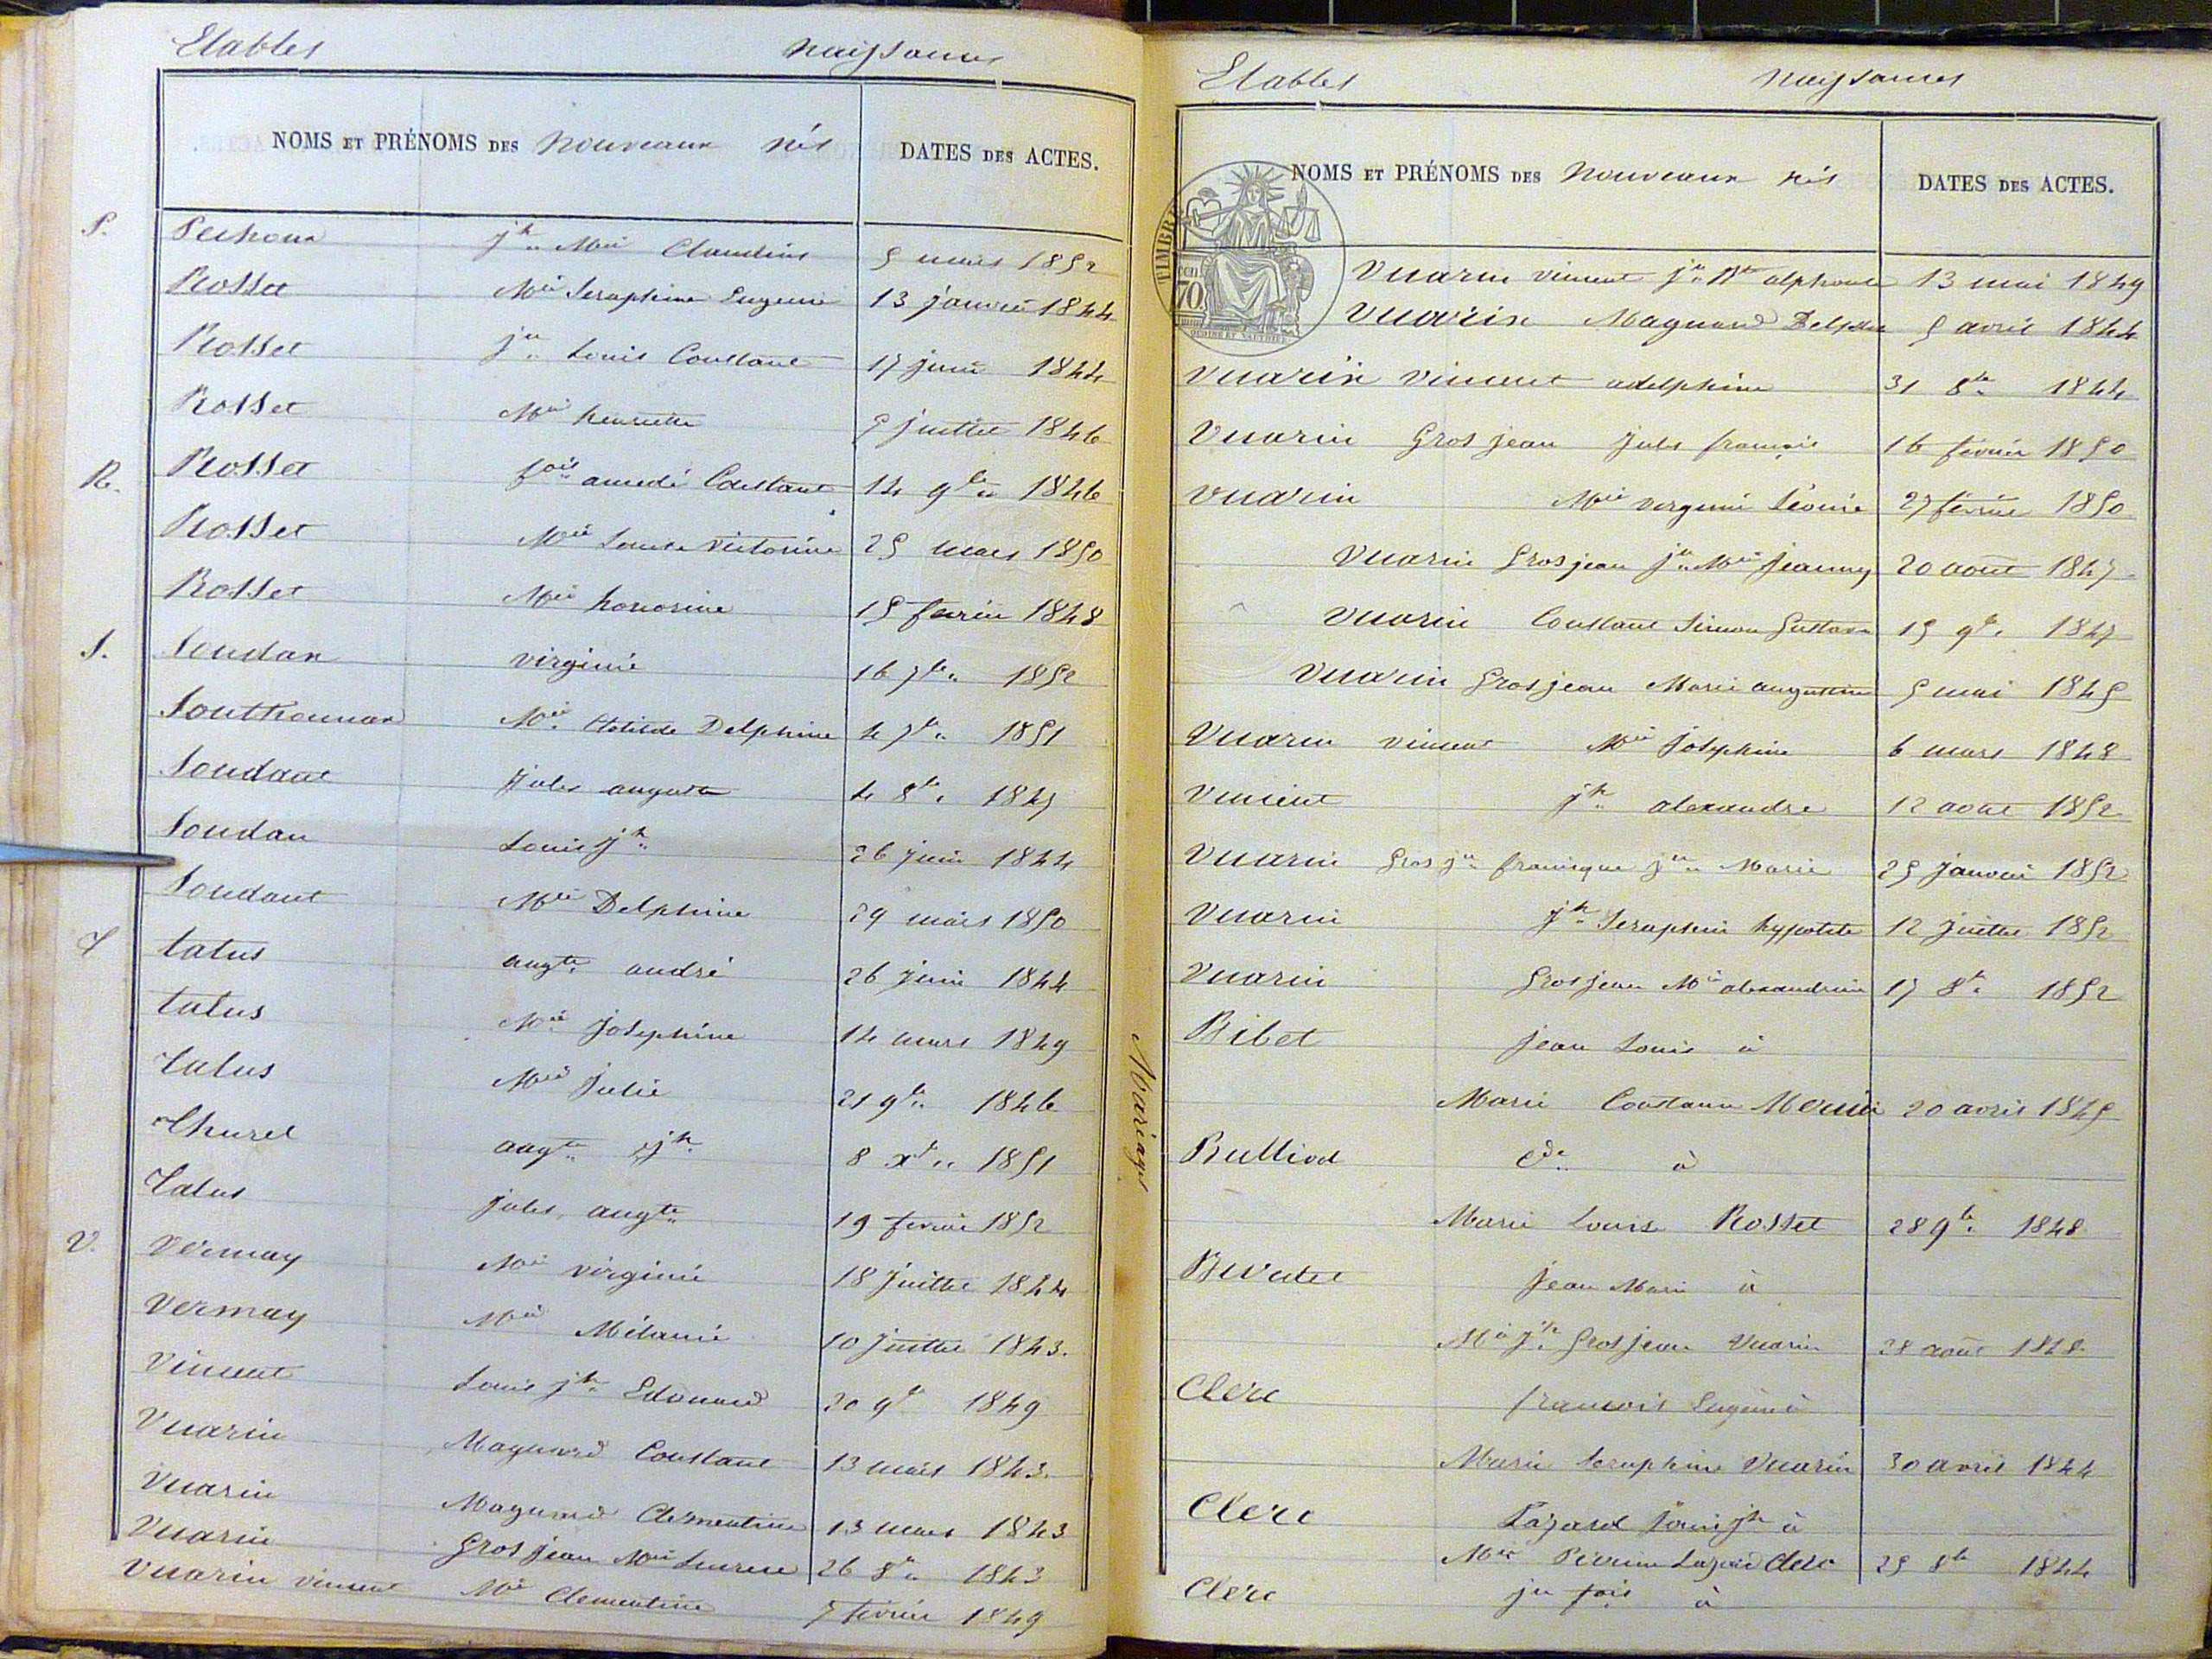 Etables Naissances
NOMS ET PRÉNOMS DES Nouveaux nés DATES DES ACTES.
P. Pechoux jh Mie Claudius 5 mars 1852
Rosset Mie Seraphine Eugenie 13 janvier 1844
Rosset jn Louis Constant 17 juin 1844
Rosset Mie henriette 5 juillet 1846
R. Rosset fois amedé Constant 14 9bre 1846
Rosset Mie Louise Victorine 25 mars 1850
Rosset Mie honorine 15 fevrier 1848
S. Soudan virginie 16 7bre 1852
Southonnax Mie Clotilde Delphine 4 7bre 1851
Soudant jules auguste 4 8bre 1847
Soudan Louis jh 26 juin 1844
Soudant Mie Delphine 29 mars 1850
T tatus augte andré 26 juin 1844
tatus Mie josephine 14 mars 1849
Tatus Mie julie 21 9bre 1846
Thurel augte jh 8 xbre 1851
Tatus jules augte 19 fevrier 1852
V. Vernay Mie virginie 18 juillet 1844
Vermay Mie Mélanie 10 juillet 1843.
Vincent Louis jh Edouard 20 9b 1849
Vuarin Maguard Constant 13 mars 1843.
Vuarin Maguard Clementine 13 mars 1843
Vuarin Gros jean Mie 26 8bre 1843
Vuarin vincent Mie Clementine 7 fevrier 1849
Mariages
Etables Naissances
NOMS ET PRÉNOMS DES Nouveaux nés DATES DES ACTES.
TIMBRE
70
Vuarin vincent jn Bte alphonse 13 mai 1849
Vuarin Maguard Delphin 5 avril 1844
Vuarin Vincent adelphine 31 8bre 1844
Vuarin Gros jean jules françois 16 février 1850
Vuarin Mie virginie Léonie 27 février 1850
Vuarin Gros jean jn Mie jeanny 20 août 1847
Vuarin Constant Simon Gustave 15 9bre 1847
Vuarin Gros jean Marie augustine 5 mai 1845
Vuarin vincent Mie josephine 6 mars 1848
Vincent jh alexandre 12 août 1852
Vuarin Gros jn francisque jn Marie 25 janvier 1852
Vuarin jh Seraphin hypolite 12 juillet 1852
Vuarin Gros jean Mie alexandrine 17 8bre 1852
Bibet jean Louis à
Marie Constance Mercier 20 avril 1845
Bulliod Cde à
Marie Louis Rosset 28 9bre 1848
jean Marie à
Mie jh Gros jean Vuarin 28 août 1848
Clerc francois Eugenie à
Marie Seraphine Vuarin 30 avril 1844
Clerc Lazard Louis jh à
Mie Pierrine Lazard Clerc 25 8b 1844
Clerc jn fois à